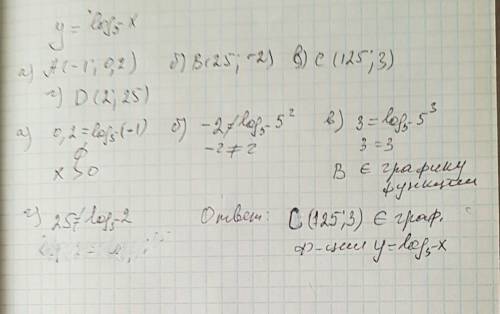 y = log₅ x
а) A(-1; 0,2) б) B(25; -2) в) C(125; 3)
г) D(2; 25)
а) 0,2 = log₅(-1) б) -2 ≠ log₅ 5² в) 3 = log₅ 5³
x > 0 -2 ≠ 2 3 = 3
В ∈ графику
функции
г) 25 ≠ log₅ 2 Ответ: C(125; 3) ∈ граф.
ф-ции y = log₅ x